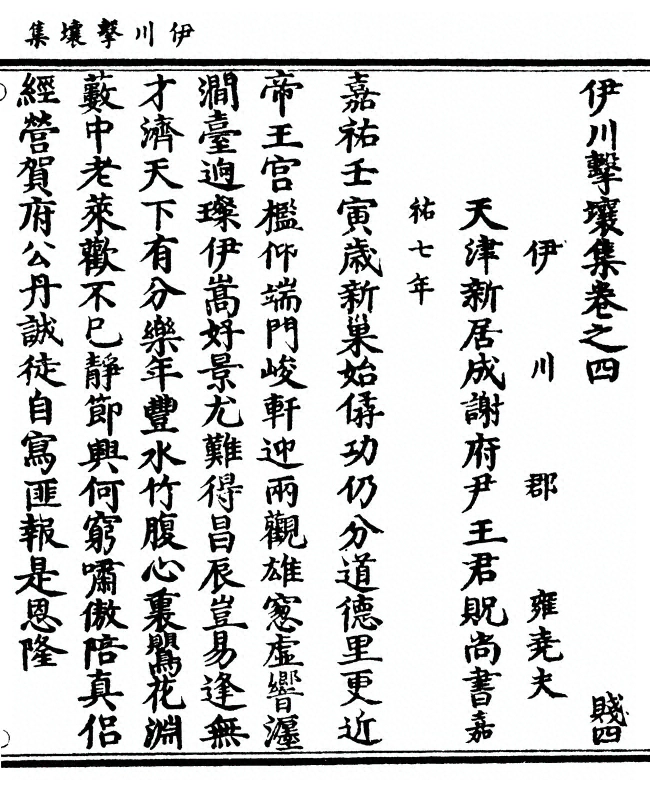 伊川擊壤集
伊川擊壤集卷之四 賤四
伊川郡雍堯夫
天津新居成謝府尹王君貺尚書嘉
祐七年
嘉祐壬寅歲新巢始僝功仍分道德里更近
帝王宮檻仰端門峻軒迎兩觀雄窻虛響瀍
澗臺逈璨伊嵩好景尤難得昌辰豈易逢無
才濟天下有分樂年豐水竹腹心裏鸎花淵
藪中老萊歡不已靜節興何窮嘯傲陪真侶
經營賀府公丹誠徒自寫匪報是恩隆